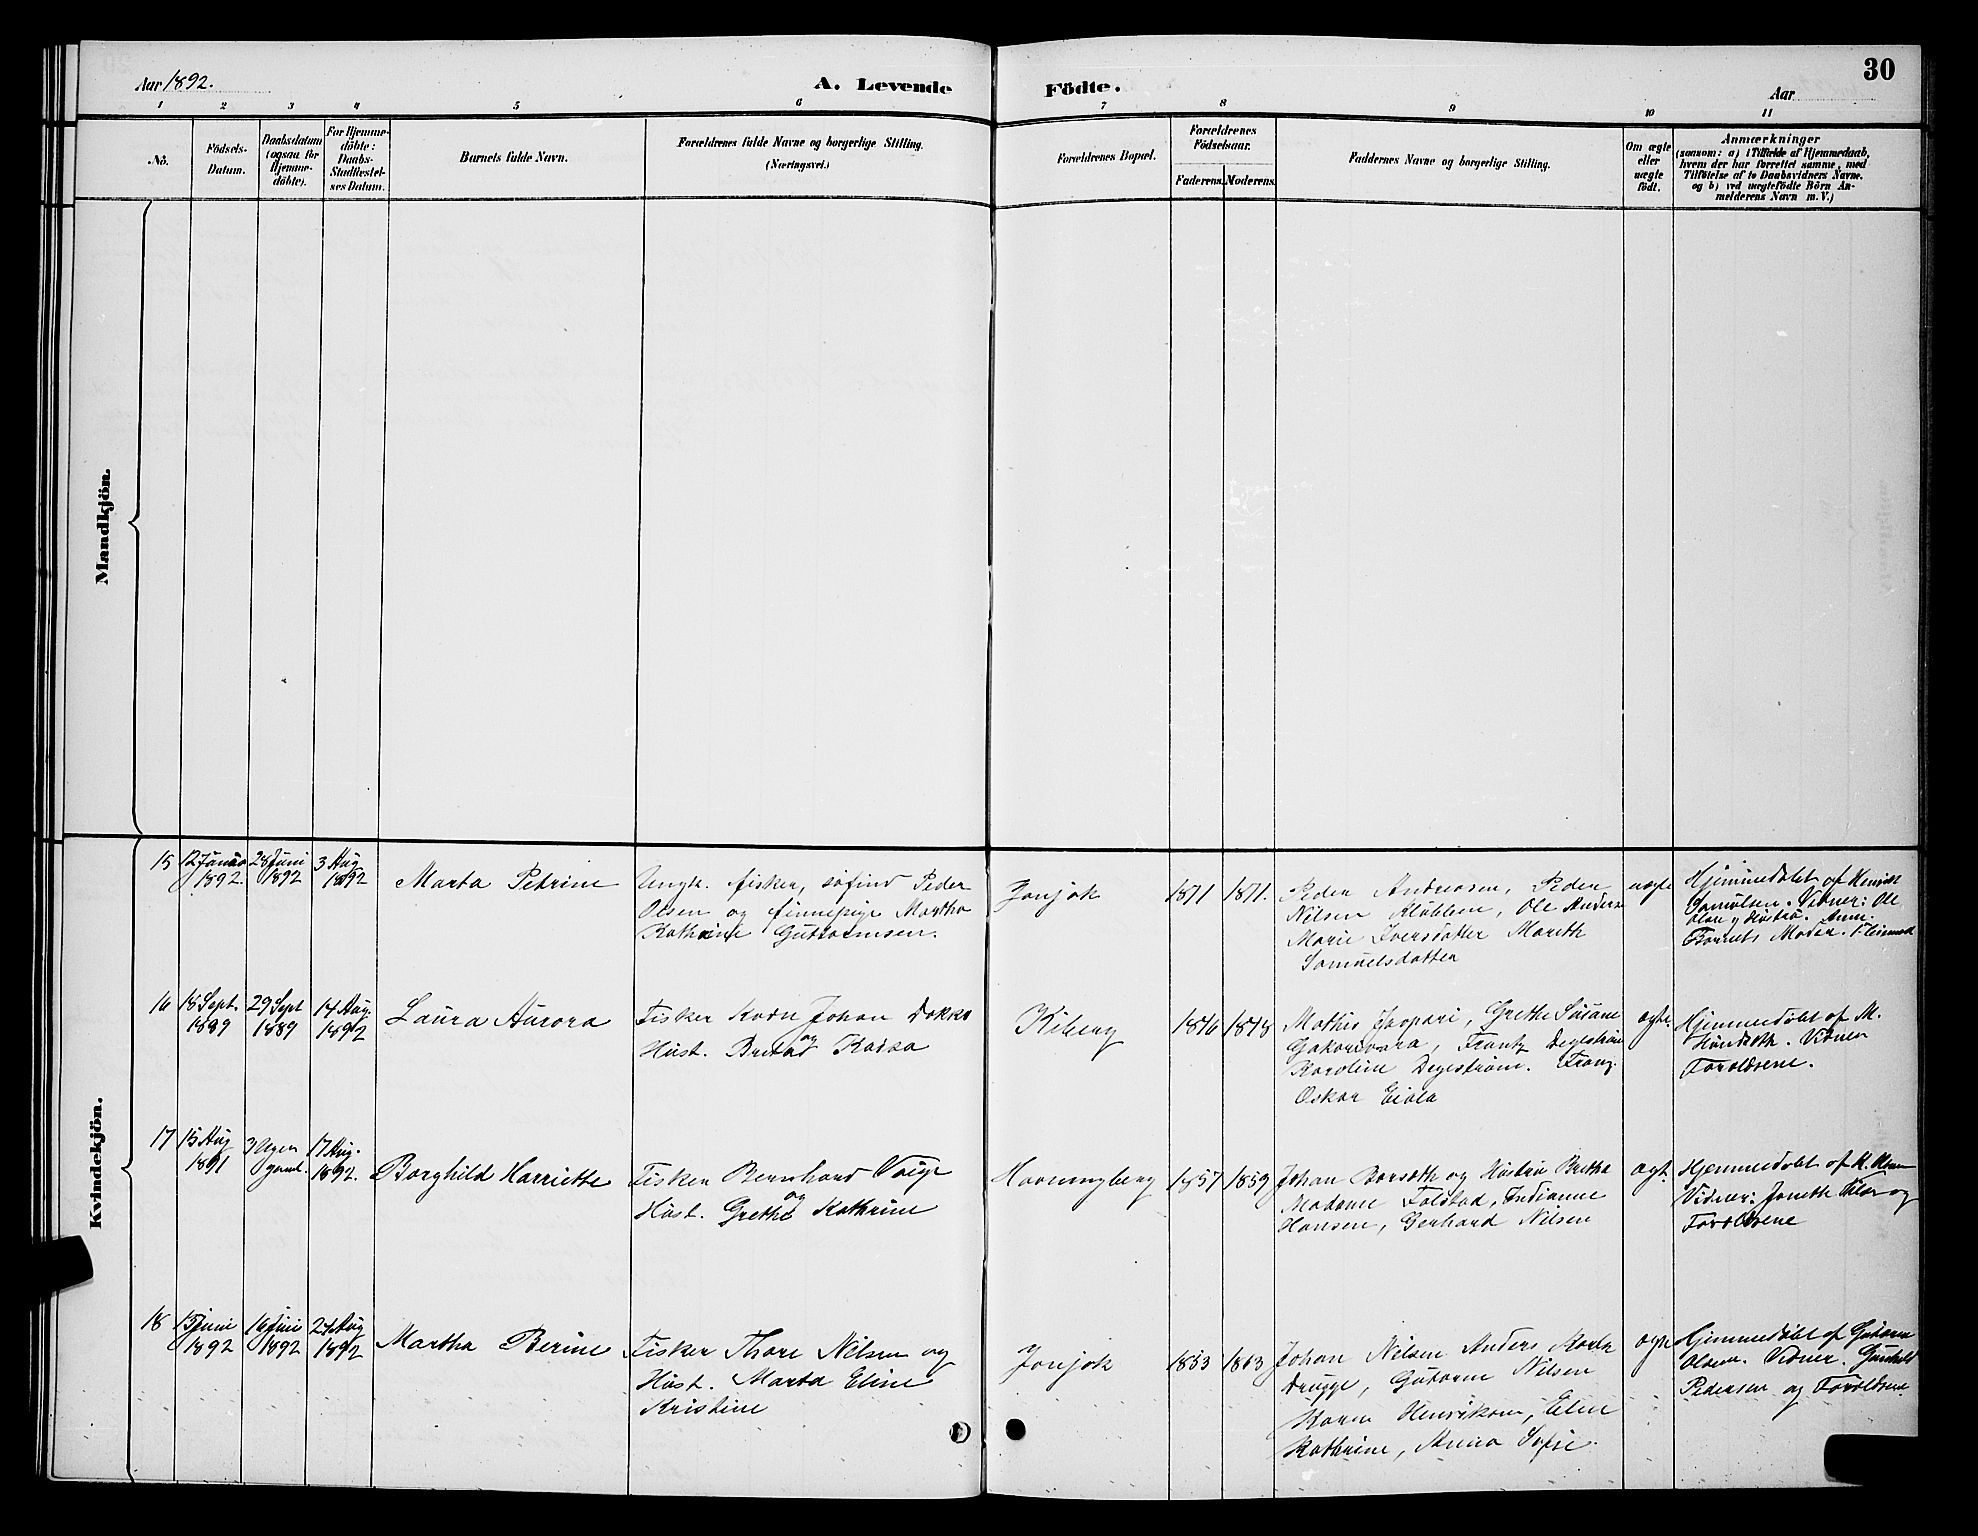 Aar 1892.
A. Levende Födte.
Aar
30
1 2 3 4 5 6 7 8 9 10 11
No.
Födsels-
Datum.
Daabsdatum
(ogsaa for
Hjemme-
döbte).
For Hjemme-
döbte:
Daabs-
Stadfæstel-
ses Datum.
Barnets fulde Navn.
Forældrenes fulde Navne og borgerlige Stilling.
(Næringsvei.)
Forældrenes Bopæl.
Forældrenes
Födselsaar.
Faderens. Moderens.
Faddernes Navne og borgerlige Stilling.
Om ægte
eller
uægte
födt.
Anmærkninger
(saasom: a) i Tilfælde af Hjemmedaab,
hvem der har forrettet samme, med
Tilföielse af to Daabsvidners Navne.
og b) ved uægtefödte Börn An-
melderens Navn m. V.)
Mandkjön.
Kvindekjön.
15
12 Januar
1892.
28 Juni
1892
3 Aug
1892
Marta Petrine
Ungk. fisker, söfind Peder
Olsen og finnepige Martha
Kathrine Guttormsen.
Jonjok
1871
1871.
Peder Andreasen, Peder
Nilsen Klubben, Ole Anders
Marie Iversdatter Mareth
Samuelsdatter
uægte
Hjemmedöbt af Henrik
Samuelsen. Vidner: Ole
Olsen og Hustru. Anm.
Barnets Moder.
16
18 Sept.
1889
29 Sept
1889
14 Aug.
1892
Laura Aurora
Fisker Johan
og
Hust. Kaisa
Kiberg
1846
1848
Mathis Gaspari, Grethe Susane
Frantz Degeström
Karoline Degeström. Franz
Oskar
ægte.
Hjemmedöbt af M.
Vidner
Forældrene.
17
15 Aug
1891
3 Uger
gamel.
17 Aug.
1892.
Borghild Harriette
Fisker Bernhard
og
Hust. Grethe Kathrine
Havningberg
1857
1859
Johan og Hustru Bertha
Madame Folstad, Indianne
Hansen, Gerhard Nilsen
ægt.
Hjemmedöbt af H.
Vidner: Jonette og
Forældrene
18
15 Juni
1892
16 Juni
1892
24 Aug
1892
Martha Berine
Fisker Thore Nilsen og
Hust. Marta Eline
Kristine
Jonjok
1853
1863
Johan Nilsen Anders
Drugge, Gutorm Nilsen
Karen Henriksen, Elen
Kathrine, Anna Sofie.
ægte
Hjemmedöbt af Gutorm
Olsen. Vidner. Gunhild
Pedersen og Forældrene.